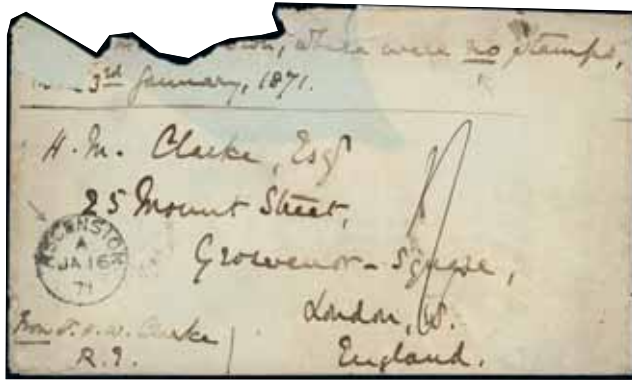 where were no stamps,
3rd January, 1871.
H. M. Clarke, Esqr
25 Mount Street,
Grosvenor-Square,
London, W.
England.
ASCENSION
A
JA 16
71
From Clarke
R.E.